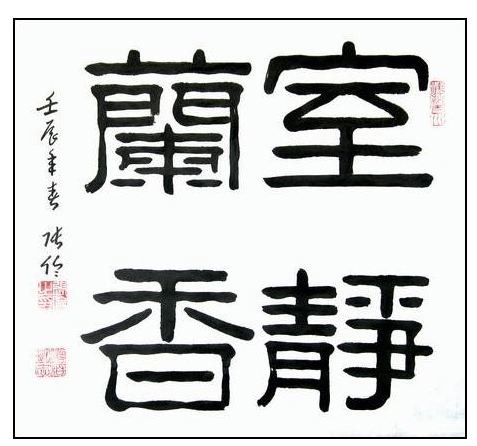 室靜
蘭香
壬辰年春